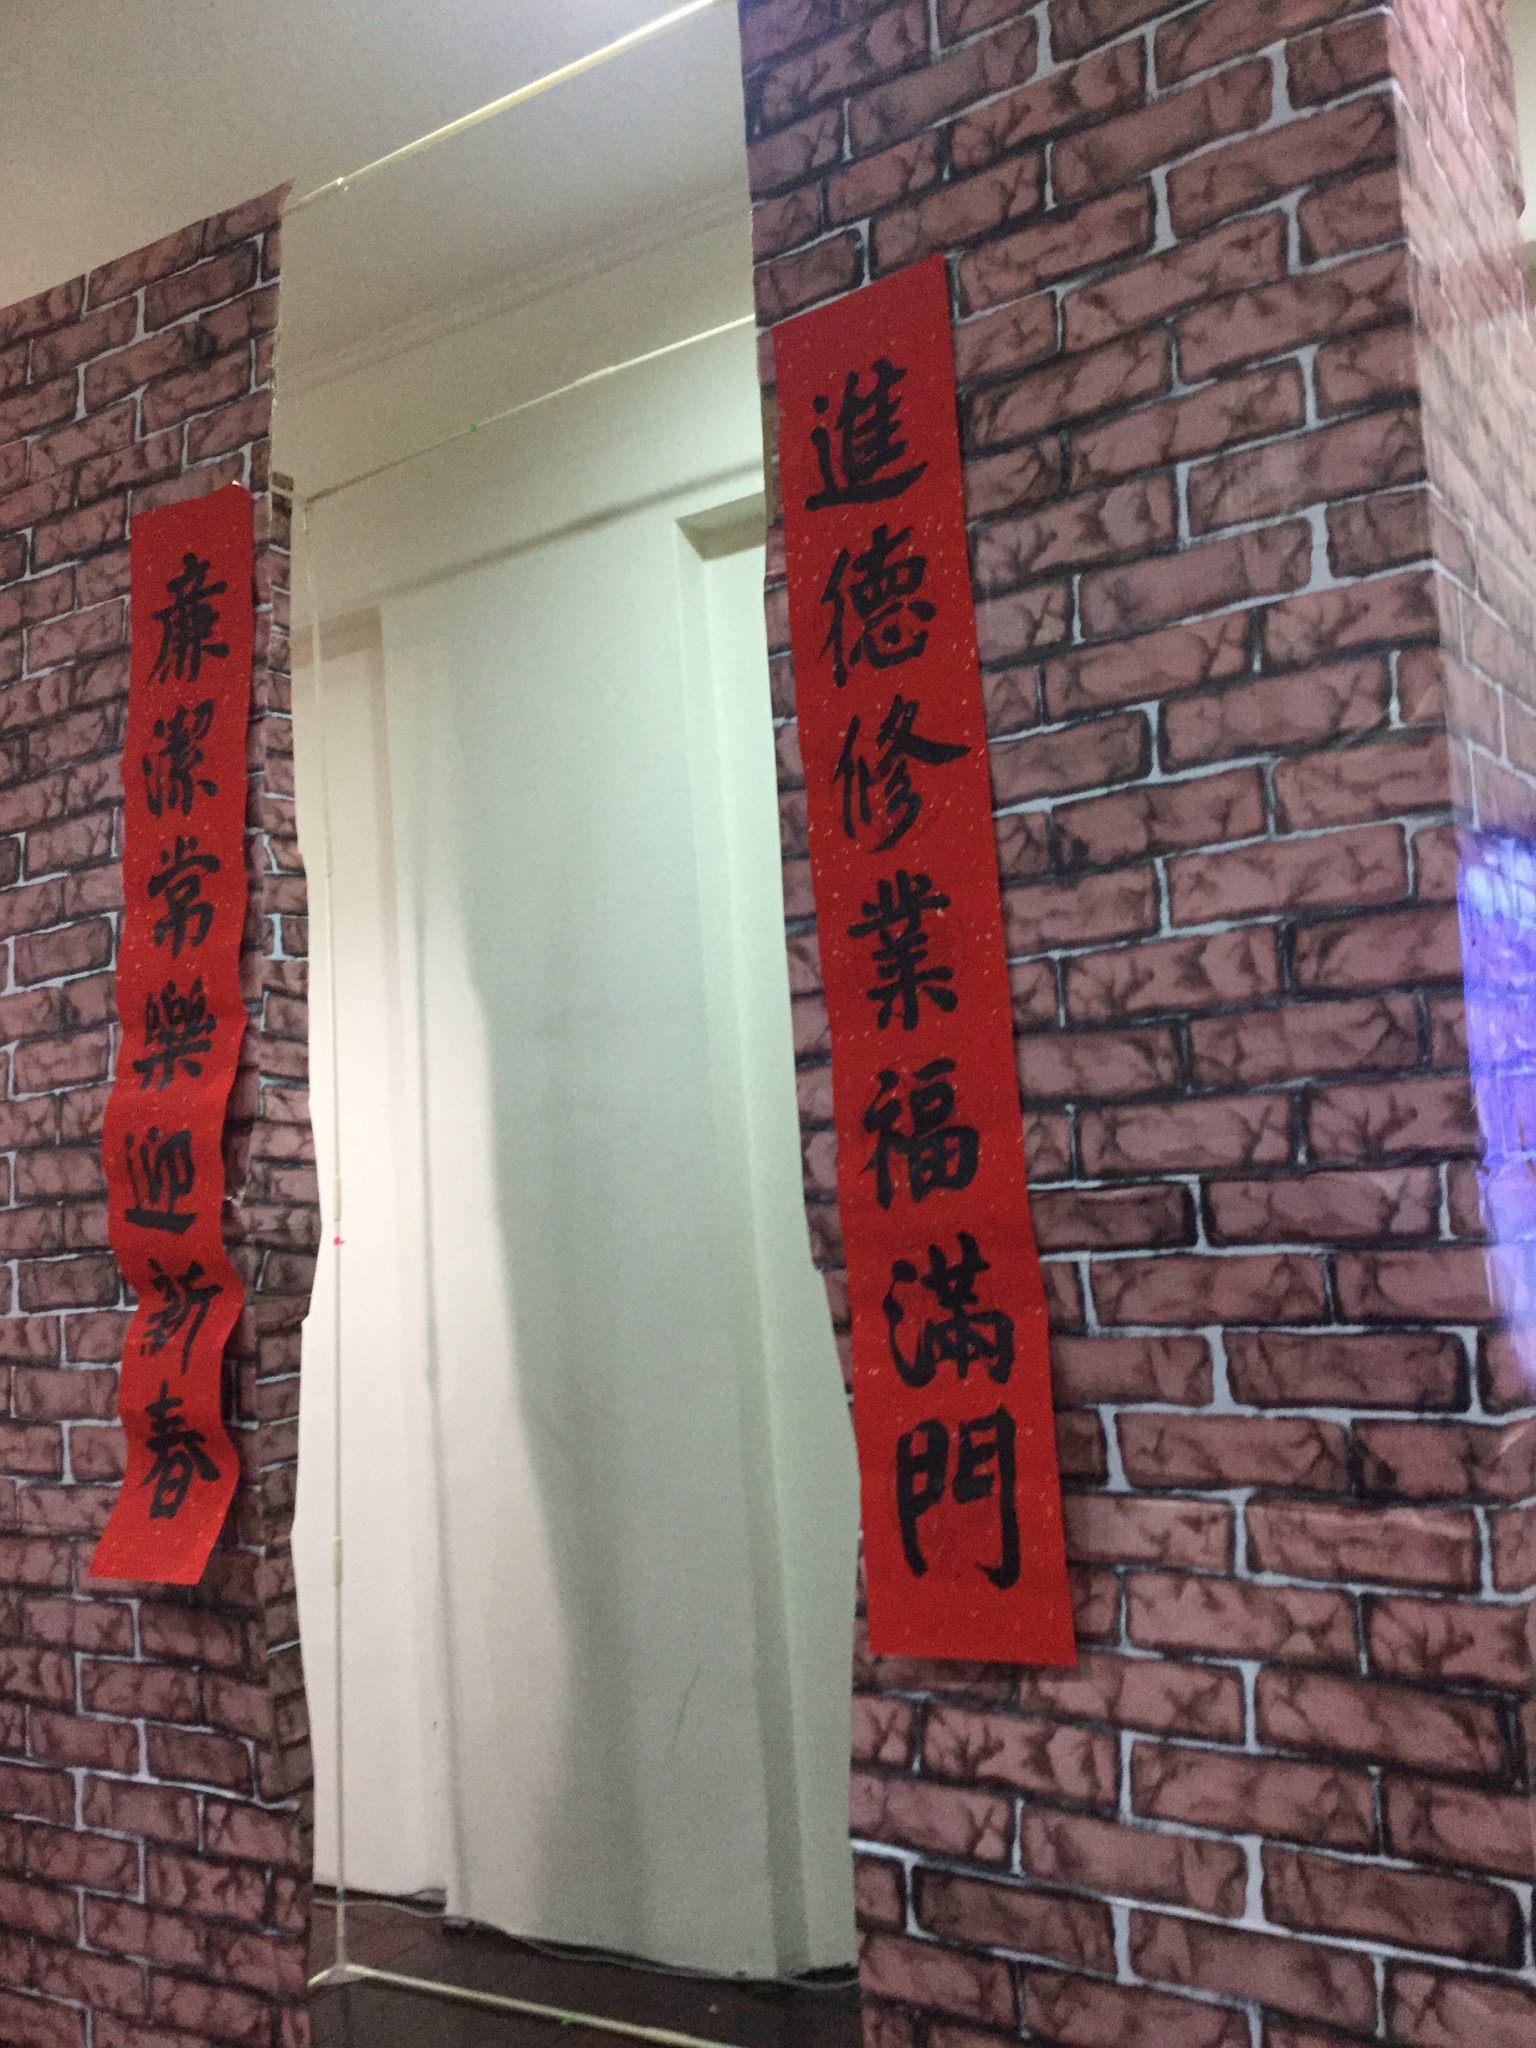 進德修業福滿門
廉潔常樂迎新春